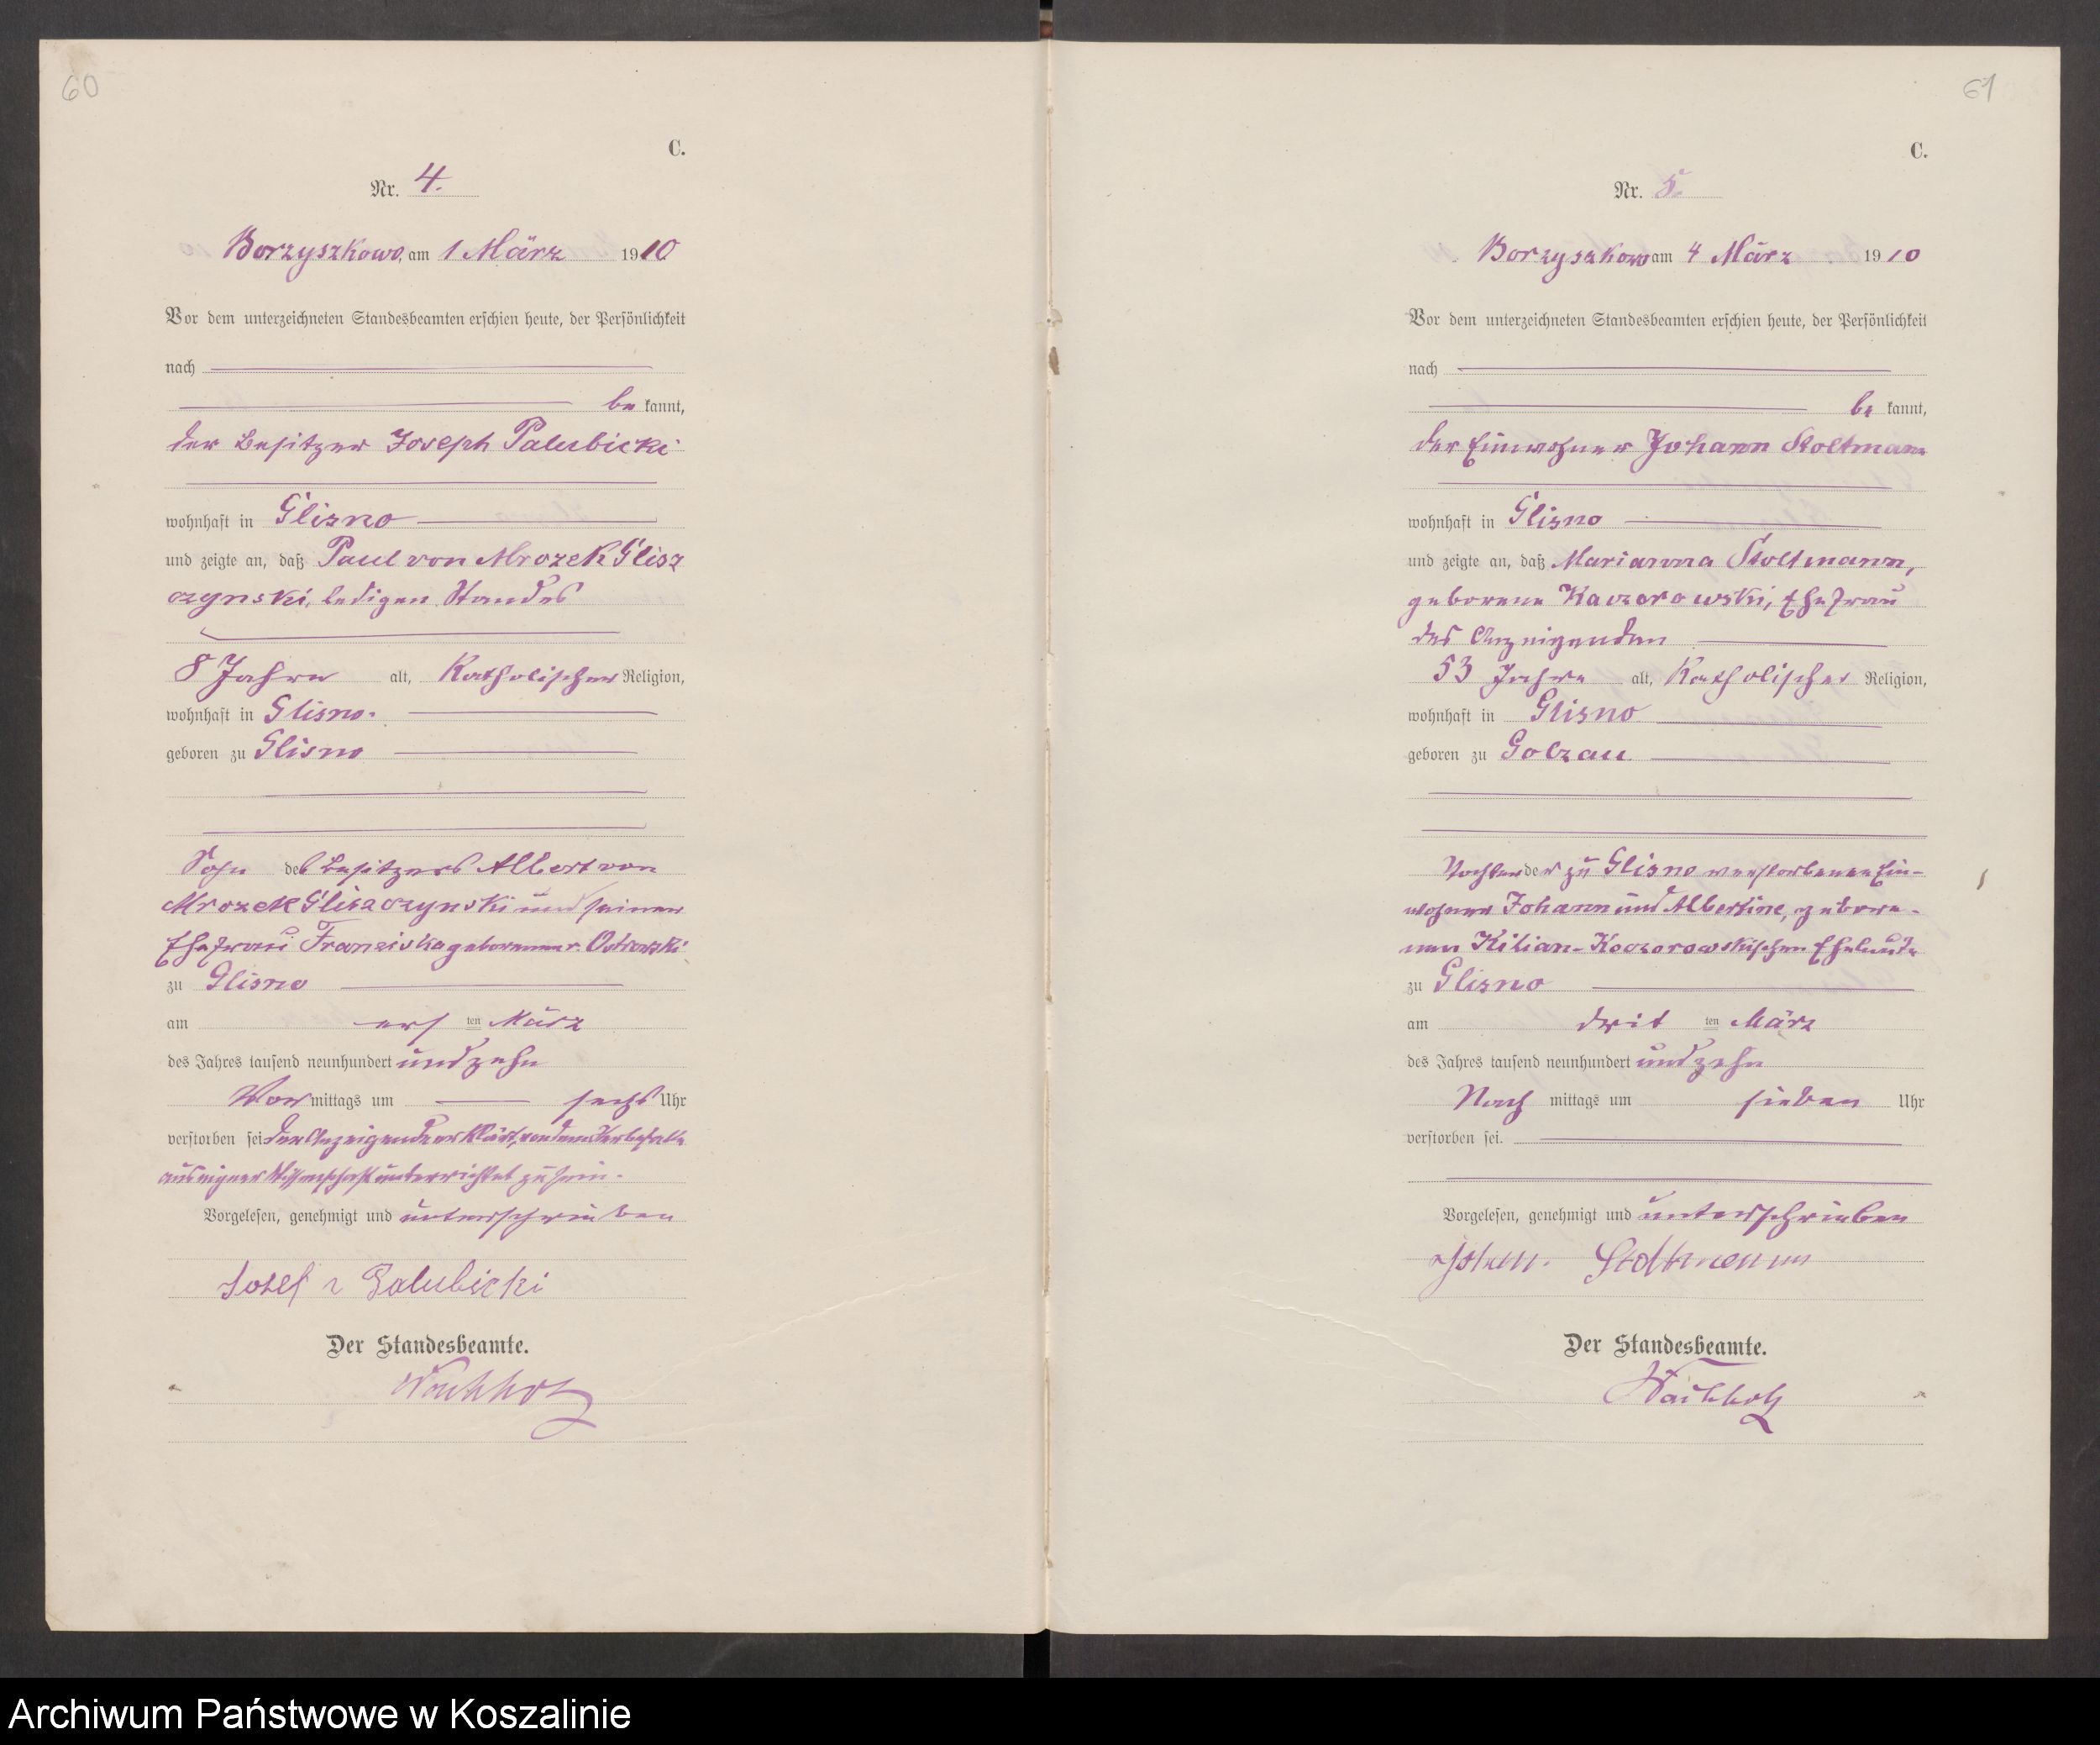 60
C.
Nr. 4.
Borzyszkowo, am 1 März 1910
Vor dem unterzeichneten Standesbeamten erschien heute, der Persönlichkeit
nach
be kannt,
der Besitzer Joseph Palubicki
wohnhaft in Glisno
und zeigte an, daß Paul von Mrozek Glisz
czynski, ledigen Standes
8 Jahre alt, Katholischer Religion,
wohnhaft in Glisno.
geboren zu Glisno
Sohn des Besitzers Albert von
Mrozek Gliszczynski und seiner
Ehefrau Franziska geborenen v. Ostrowski
zu Glisno
am ers ten März
des Jahres tausend neunhundert und zehn
Vor mittags um sechs Uhr
verstorben sei der Anzeigende erklärt, von dem Sterbefalle
aus eigner Wissenschaft unterrichtet zu sein.
Vorgelesen, genehmigt und unterschrieben
Josef v Palubicki
Der Standesbeamte.
Wachholz
61
C.
Nr. 5.
Borzyszkowo am 4 März 1910
Vor dem unterzeichneten Standesbeamten erschien heute, der Persönlichkeit
nach
be kannt,
der Einwohner Johann Stoltmann
wohnhaft in Glisno
und zeigte an, daß Marianna Stoltmann,
geborene Kaczorowski, Ehefrau
des Anzeigenden
53 Jahre alt, Katholischer Religion,
wohnhaft in Glisno
geboren zu Golzau
Tochter der zu Glisno verstorbenen Ein-
wohner Johann und Albertine, gebore-
nen Kilian-Kaczorowskischen Eheleute
zu Glisno
am drit ten März
des Jahres tausend neunhundert und zehn
Nach mittags um sieben Uhr
verstorben sei.
Vorgelesen, genehmigt und unterschrieben
Johan. Stoltmann
Der Standesbeamte.
Wachholz
Archiwum Państwowe w Koszalinie